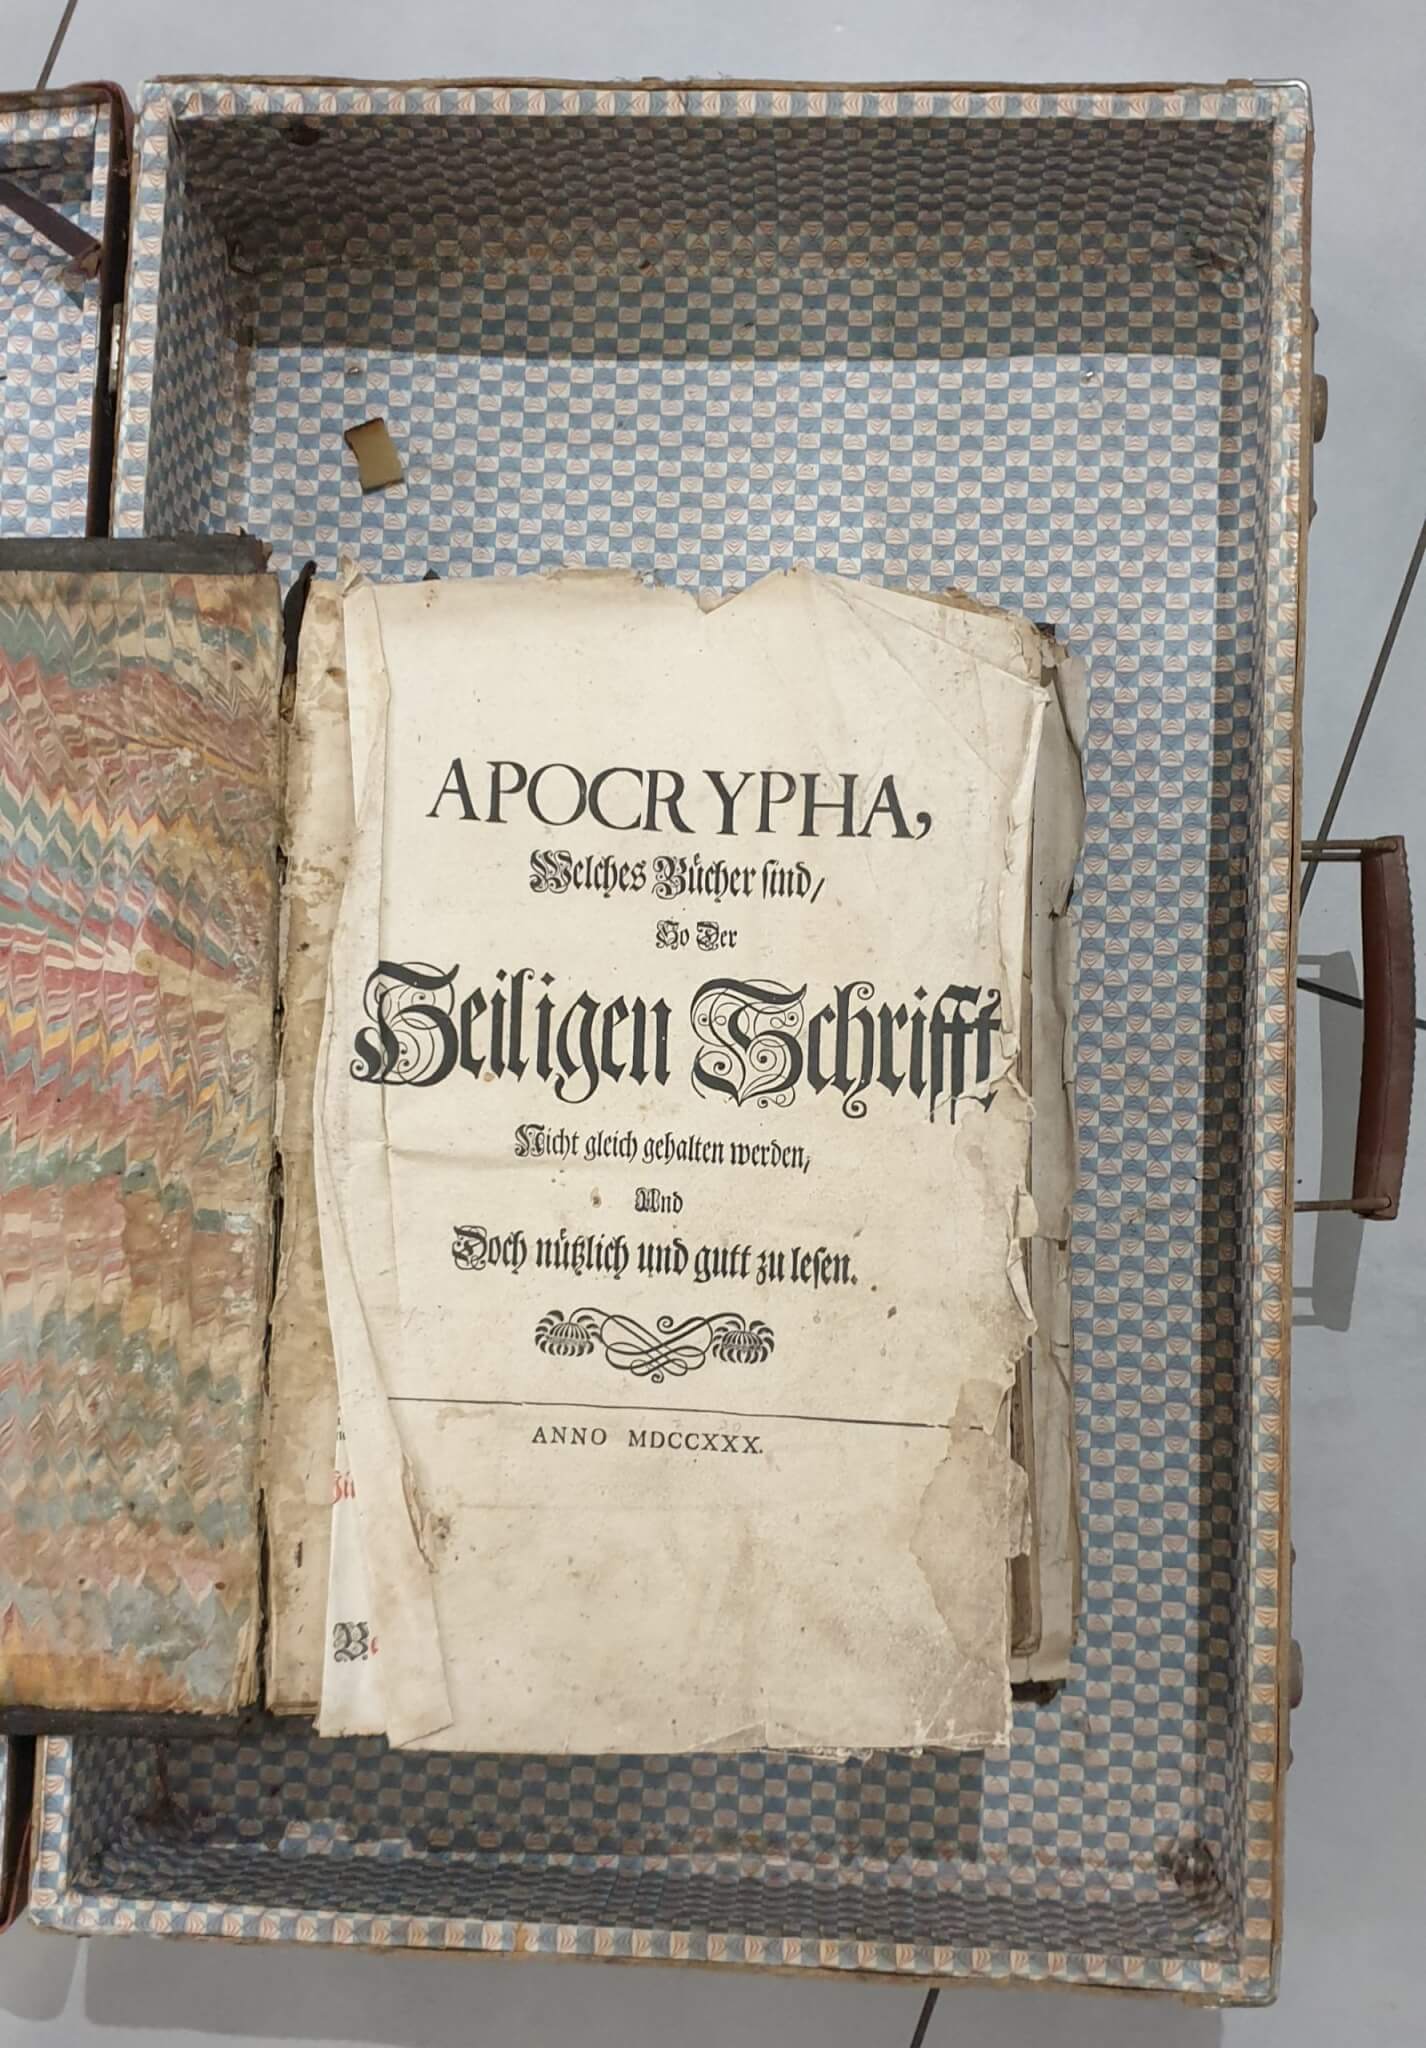 APOCRYPHA,
Welches Bücher sind/
So Der
Heiligen Schrifft
Nicht gleich gehalten werden,
Und
Doch nützlich und gutt zu lesen.
ANNO MDCCXXX.